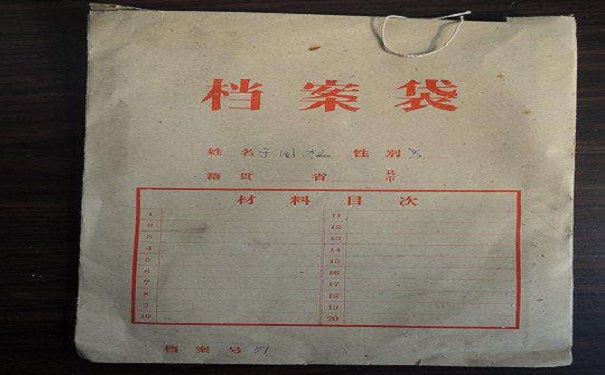 档案袋
姓名 性别 男
籍贯 省 县市
材料目次
1 11
2 12
3 13
4 14
5 15
6 16
7 17
8 18
9 19
10 20
档案号